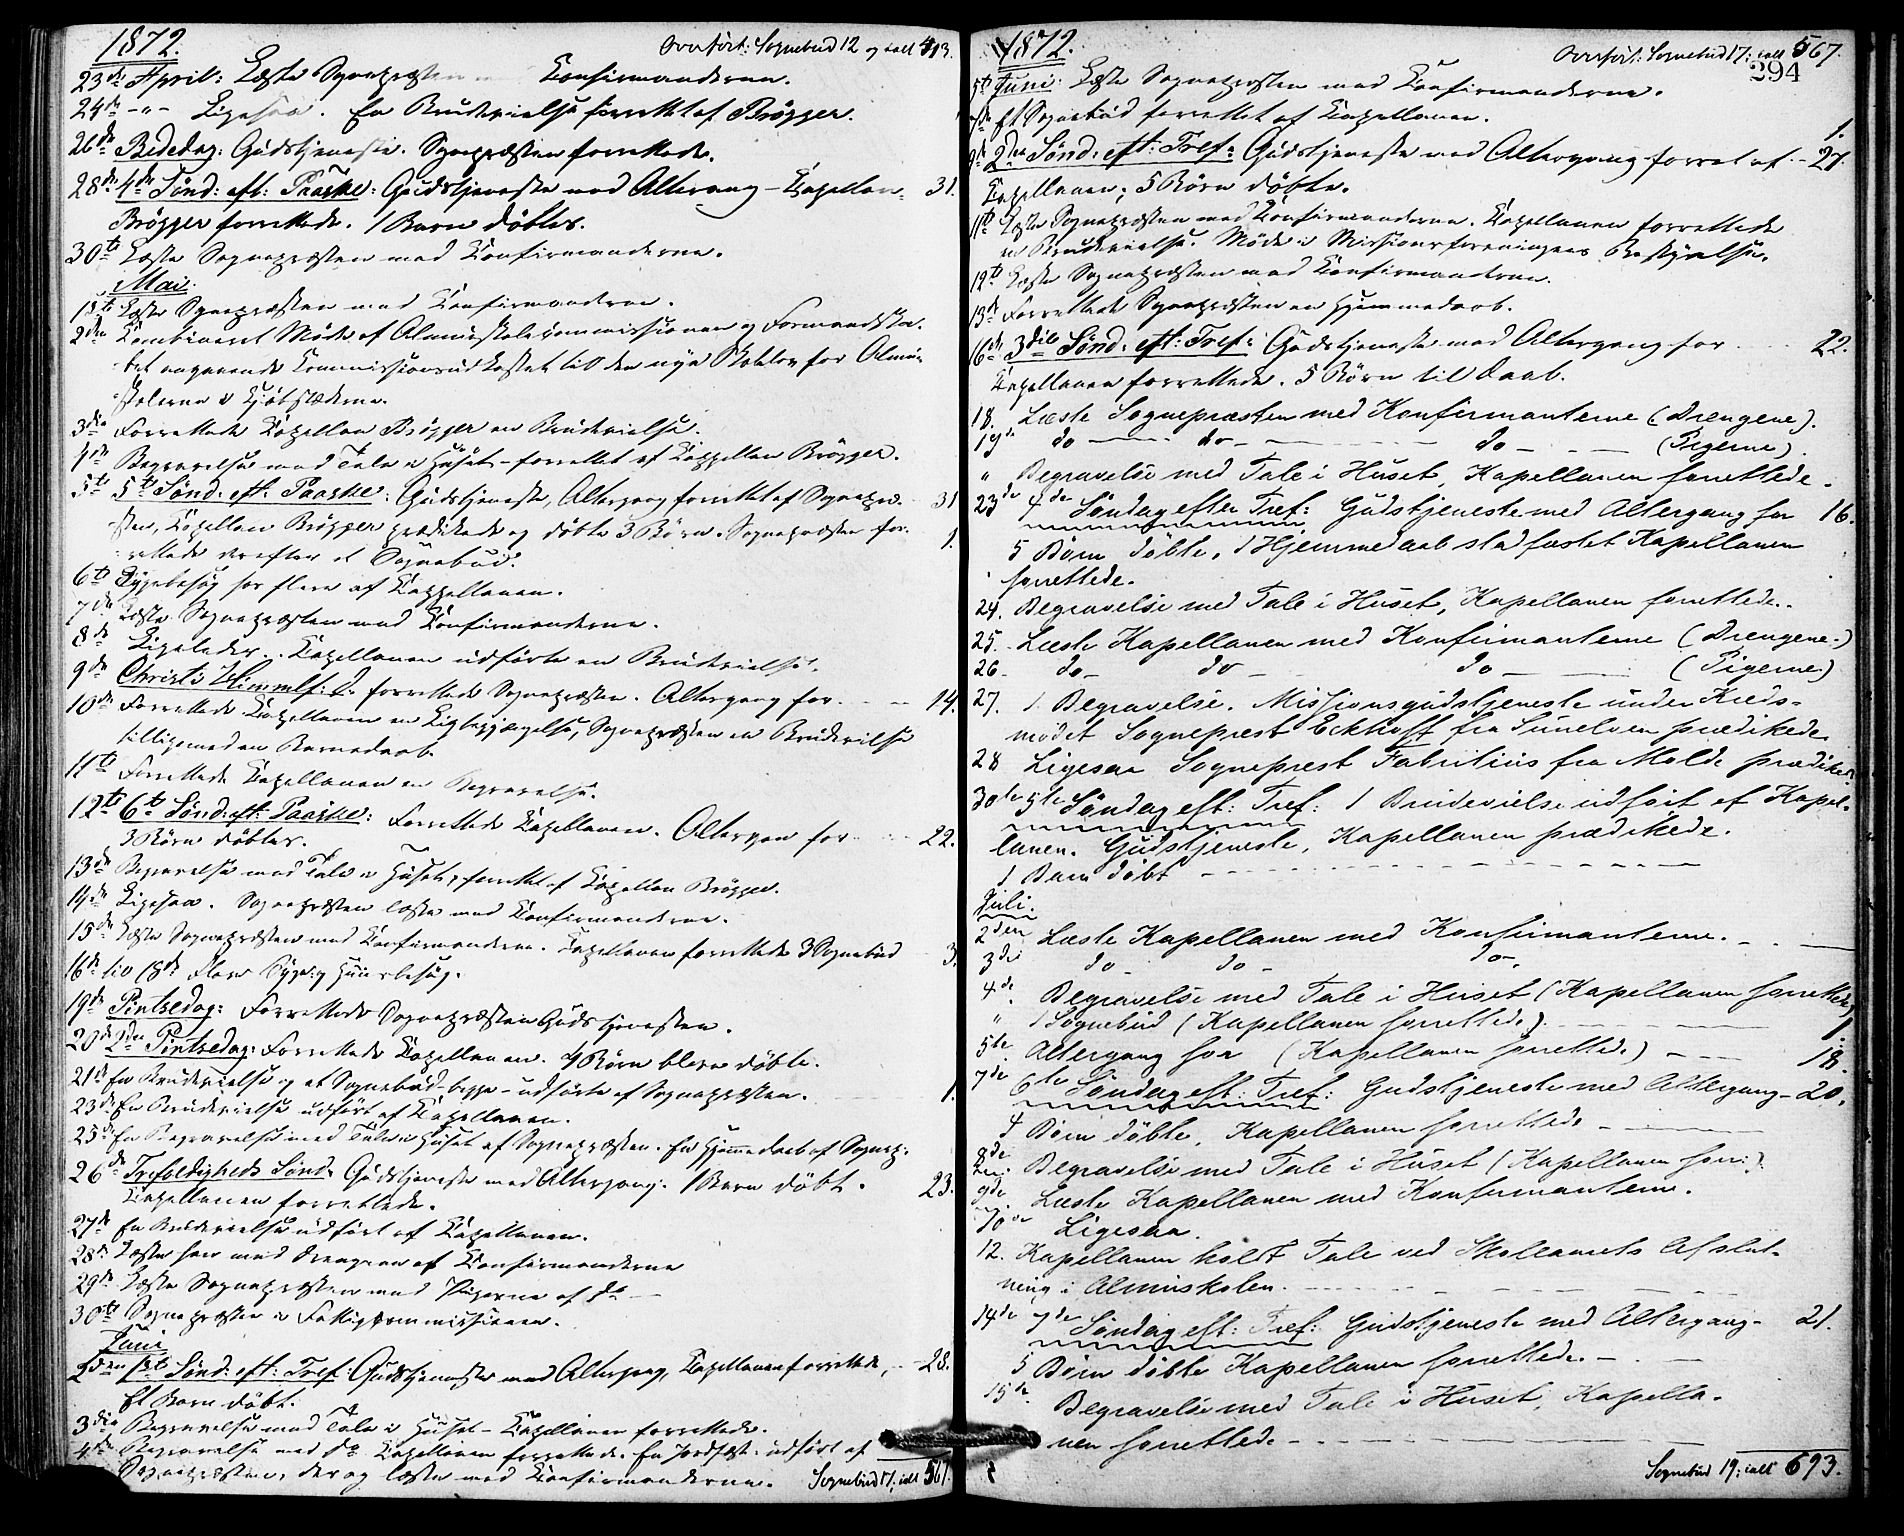 1872.
Overført: Sognebud 12 og ialt 413.
23de April: Læste Sognepræsten med Konfirmanderne.
24de -"- Ligesaa. En Brudevielse forrettet af Brøgger.
26de Bededag: Gudstjeneste. Sognepræsten forrettede.
28de 4de Sønd: eft: Paaske: Gudstjeneste med Altergang - Kapellan 31.
Brøgger forrettede. 1 Barn døbtes.
30te Læste Sognepræsten med Konfirmanderne.
Mai.
1ste Læste Sognepræsten med Konfirmanderne.
2den Kombineret Møde af Almueskolekommissionen og Formandska-
bet angaaende Kommissionsudkastet til den nye Skolelov for Almue-
skolerne i Kjøbstæderne.
3die Forrettede Kapellan Brøgger en Brudevielse.
4de Begravelse med Tale i Huset - forrettet af Kappellan Brøgger.
5te 5te Sønd: eft: Paaske: Gudstjeneste, Altergang forrettet af Sognepræ- 31
sten, Kapellan Brøgger prædikede og døbte 3 Børn. Sognepræsten for-
rettede derefter et Sognebud. 1.
6te Sygebesøg hos flere af Kappellanen.
7de Læste Sognepræsten med Konfirmanderne.
8de Ligeledes. Kapellanen udførte en Brudevielse.
9de Christi Himmelf: D. forrettede Sognepræsten. Altergang for 14.
10de Forrettede Kapellanen en Ligbegjængelse, Sognepræsten en Brudevielse
tilligemed en Barnedaab.
11te Forrettede Kapellanen en Begravelse.
12te 6te Sønd: eft: Paaske: Forrettede Kapellanen. Altergan for 22.
3 Børn døbtes.
13de Begravelse med Tale i Huset, forrettet af Kapellan Brøgger.
14de Ligesaa. Sognepræsten læste med Konfirmanderne.
15de Læste Sognepræsten med Konfirmanderne. Kapellanen forrettede 3 Sognebud 3.
16de til 18de Flere Syge og Huusbesøg.
19de Pintsedag: Forrettede Sognepræsten Gudstjenesten.
20de 2den Pintsedag: Forrettede Kapellanen. 4 Børn bleve døbte.
21de En Brudevielse og et Sognebud - begge - udførte af Sognepræsten. 1.
23de En Brudevielse udført af Kapellanen.
25de En Begravelse med Tale i Huset af Sognepræsten. En Hjemmedaab af Sognep:
26de Trefoldigheds Sønd. Gudstjeneste med Altergang. 1 Barn døbt. 23.
Kapellanen forrettede.
27de En Brudevielse udført af Kapellanen.
28de Læste han med Drengene af Konfirmanderne
29de Læste Sognepræsten med Pigerne af Do
30te Sognepræsten i Fattigkommissionen.
Juni
2den 1ste Sønd: eft: Tref: Gudstjeneste med Altergang, Kapellanen forrettede, 28.
Et Barn døbt.
3die Begravelse med Tale i Huset - Kapellanen forrettede.
4de Begravelse med Do Kapellanen forrettede. En Jordfæst. udført af
Sognepræsten, der og læste med Konfirmanderne. Sognebud 17; ialt 567.
1872.
Overført: Sognebud 17; ialt 567.
294
5te Juni: Læste Sognepræsten med Konfirmanderne.
7de Et Sognebud forrettet af Kapellanen. 1.
9de 2den Sønd: eft: Tref: Gudstjeneste med Altergang forret af 27.
Kapellanen; 5 Børn døbte.
11te Læste Sognepræsten med Konfirmanderne. Kapellanen forrettede
en Brudevielse. Møde i Missionsforeningens Bestyrelse.
12te Læste Sognepræsten med Konfirmanderne.
13de Forrettede Sognepræsten en Hjemmedaab.
16de 3die Sønd: eft: Tref: Gudstjeneste med Altergang for 22.
Kapellanen forrettede. 5 Børn til Daab.
18. Læste Sognepræsten med Konfirmanterne (Drengene).
19de do — do — do — (Pigerne).
" Begravelse med Tale i Huset, Kapellanen forrettede.
23de 4de Søndag efter Tref: Gudstjeneste med Altergang for 16.
5 Børn døbte, 1 Hjemmedaab stadfæstet Kapellanen
forrettede.
24. Begravelse med Tale i Huset, Kapellanen forrettede.
25. Læste Kapellanen med Konfirmanterne (Drengene.)
26 do — do — do — (Pigerne)
27. 1 Begravelse. Missionsgudstjeneste under Kreds-
mødet Sogneprest Eckhoff fra Sunelven prædikede
28 Ligesaa Sogneprest Fabritius fra Molde prædikede
30te 5te Søndag eft: Tref: 1 Brudevielse udført af Kapel-
lanen. Gudstjeneste, Kapellanen prædikede.
1 Barn døbt
Juli.
2den Læste Kapellanen med Konfirmanterne.
3die do — do — do —
4de Begravelse med Tale i Huset (Kapellanen forrettede)
" 1 Sognebud (Kapellanen forrettede) 1.
5te Altergang for (Kapellanen forrettede) 18.
7de 6te Søndag eft: Tref: Gudstjeneste med Altergang - 20.
4 Børn døbte, Kapellanen forrettede
8de Begravelse med Tale i Huset (Kapellanen for:)
9de Læste Kapellanen med Konfirmanterne.
10de Ligesaa.
12. Kapellanen holdt Tale ved Skoleaarets Afslut-
ning i Almuskolen.
14de 7de Søndag eft: Tref: Gudstjeneste med Altergang - 21.
5 Børn døbte Kapellanen forrettede.
15de Begravelse med Tale i Huset, Kapella-
nen forrettede
Sognebud 19; ialt 693.